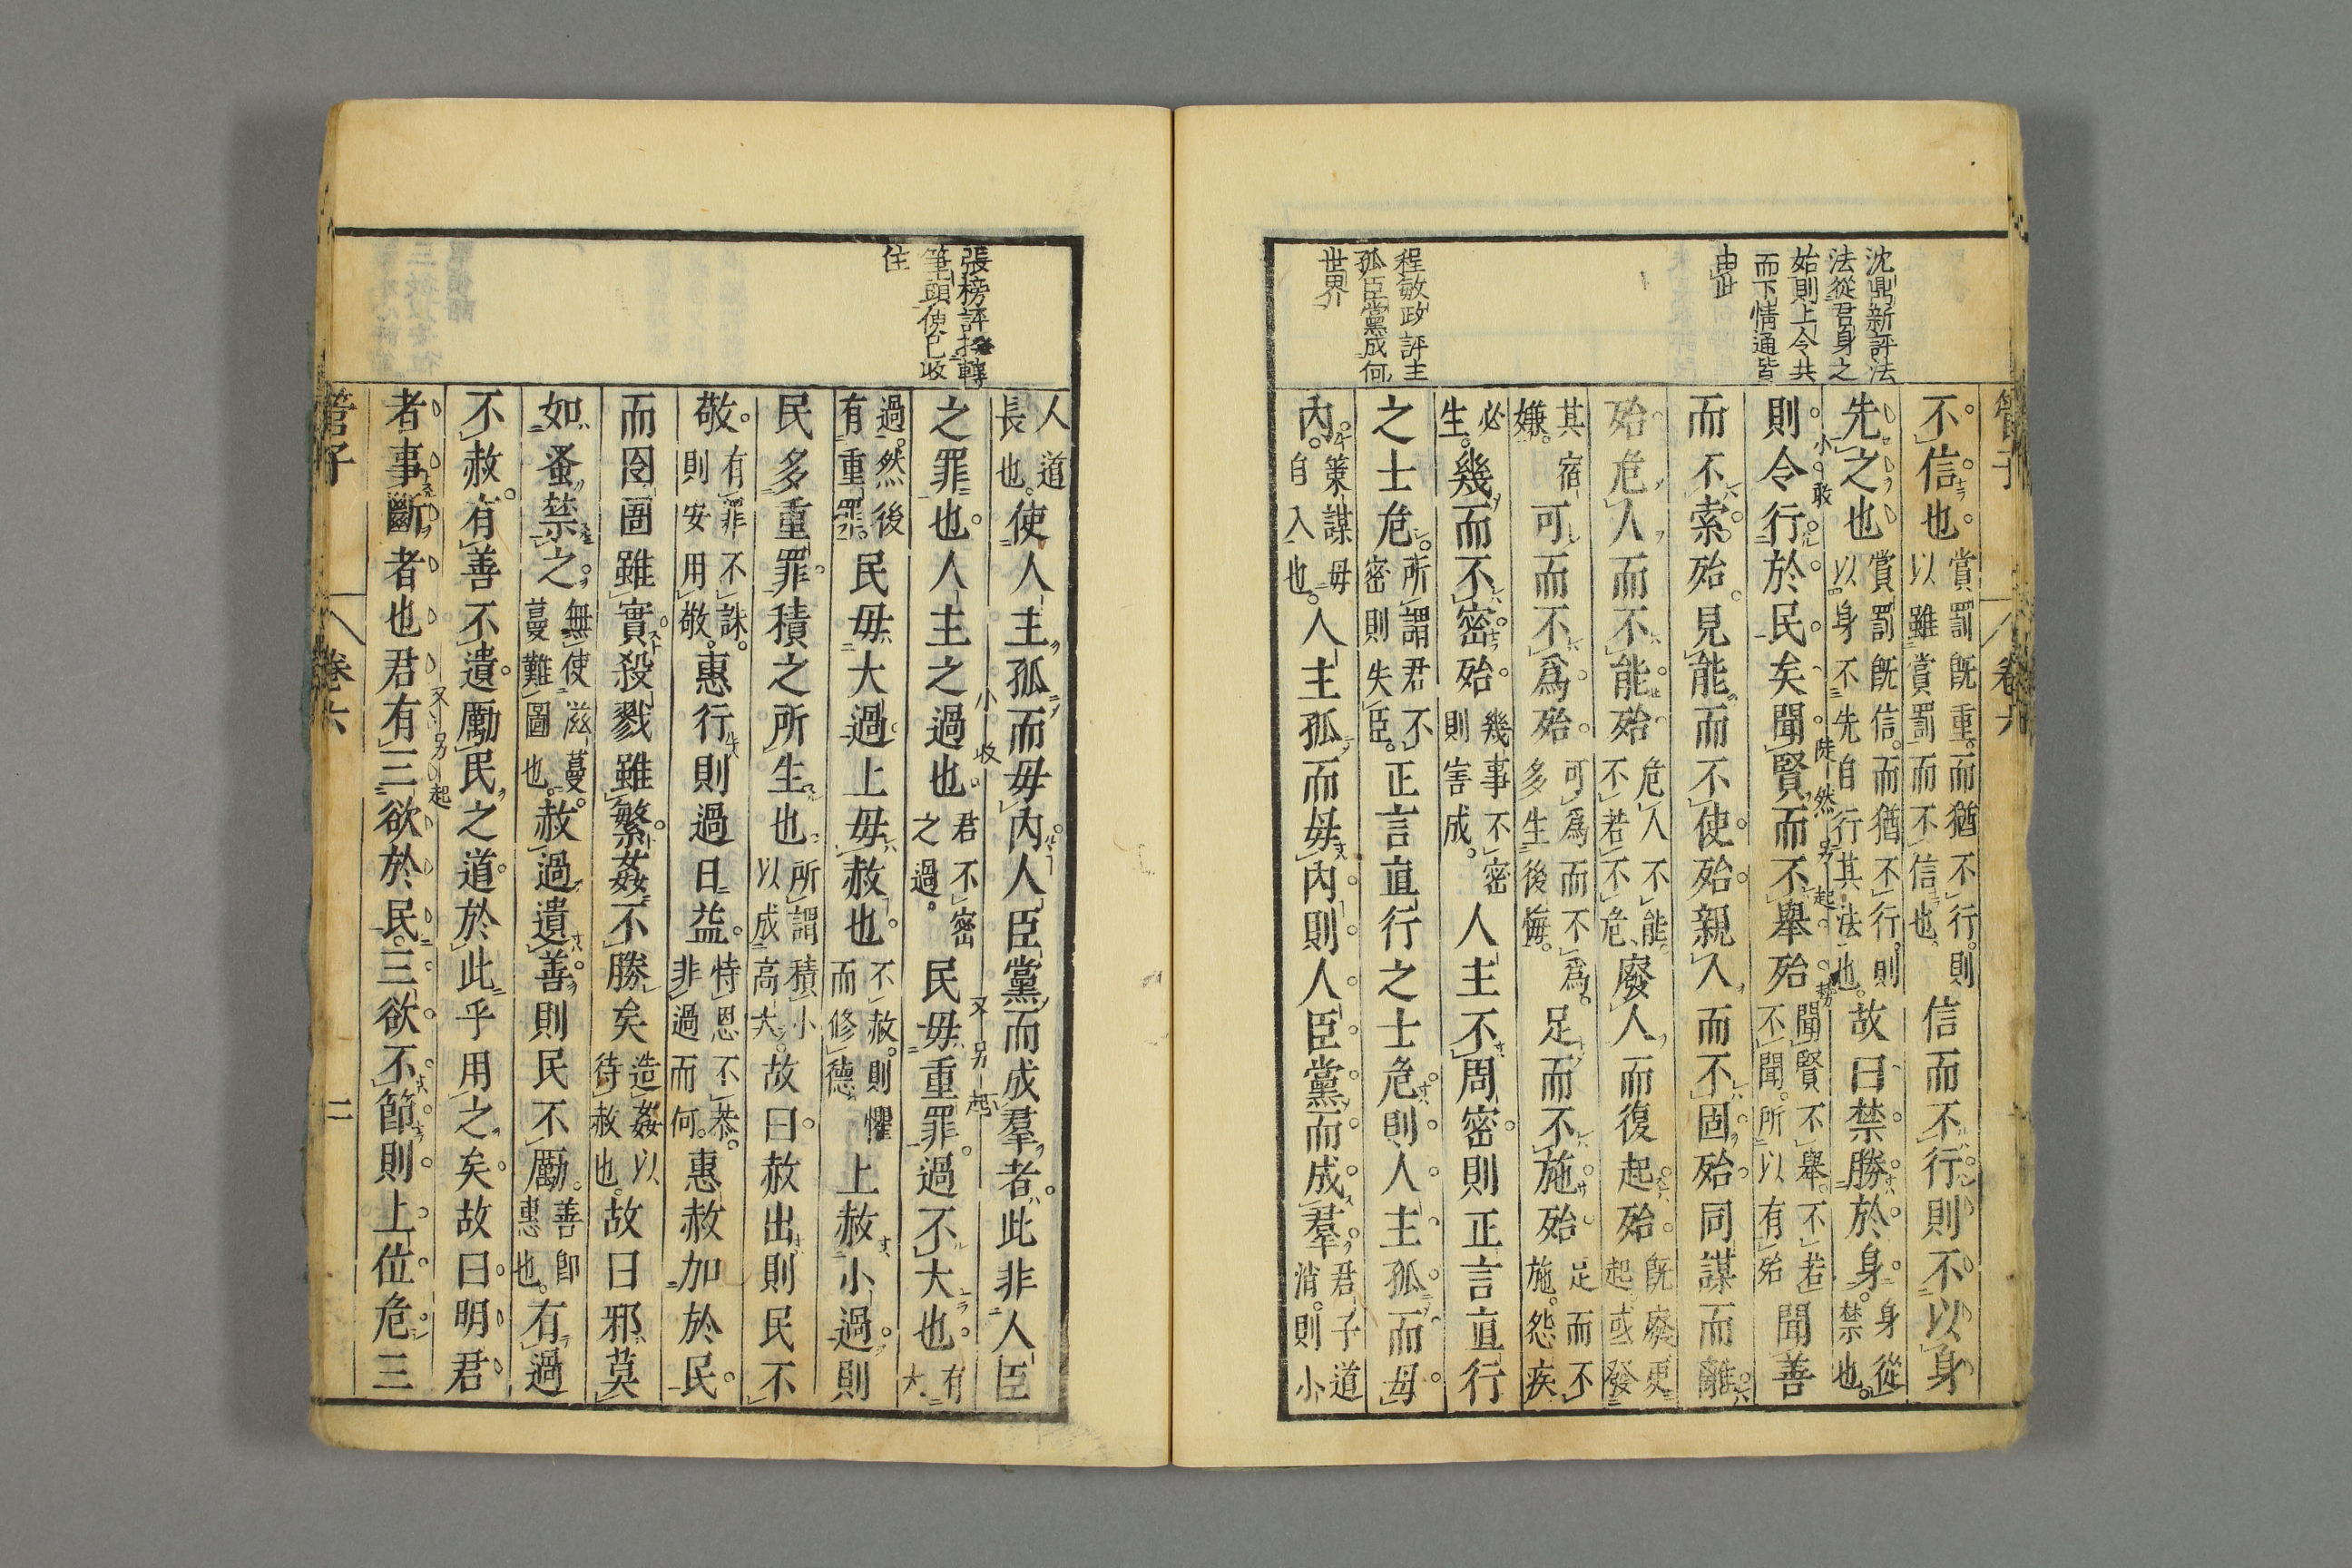 沈鼎新評法
法從君身之
始則上令共
而下情通皆
由此
程敏政評主
孤臣黨成何
世界
管子 卷六
不信也賞罰既重而猶不行則以雖賞罰而不信也信而不行則不以身
先之也賞罰既信而猶不行則以身不先自行其法也故曰禁勝於身身從禁也
則令行於民矣聞賢而不舉殆聞賢不舉不若不聞所以有殆聞善
而不索殆見能而不使殆親人而不固殆同謀而離
殆危人而不能殆危人不能不若不危廢人而復起殆既廢更起或發
其宿嫌可而不爲殆可爲而不爲多生後悔足而不施殆足而不施怨疾
必生幾而不密殆幾事不密則害成人主不周密則正言直行
之士危所謂君不密則失臣正言直行之士危則人主孤而毋
內策謀毋自入也人主孤而毋內則人臣黨而成羣君子道消則小
小敢
陡然另起
張榜評拶轉
筆頭使已收
住
人道長也使人主孤而毋內人臣黨而成羣者此非人臣
之罪也人主之過也君不密之過民毋重罪過不大也有大
過然後有重罪民毋大過上毋赦也不赦則懼而修德上赦小過則
民多重罪積之所生也所謂積小以成高大故曰赦出則民不
敬有罪不誅則安用敬惠行則過日益恃恩不恭非過而何惠赦加於民
而囹圄雖實殺戮雖繁姦不勝矣造姦以待赦也故曰邪莫
如蚤禁之無使滋蔓蔓難圖也赦過遺善則民不勵善卽惠也有過
不赦有善不遺勵民之道於此乎用之矣故曰明君
者事斷者也君有三欲於民三欲不節則上位危三
小收
又另起
又另起
管子 卷六 二